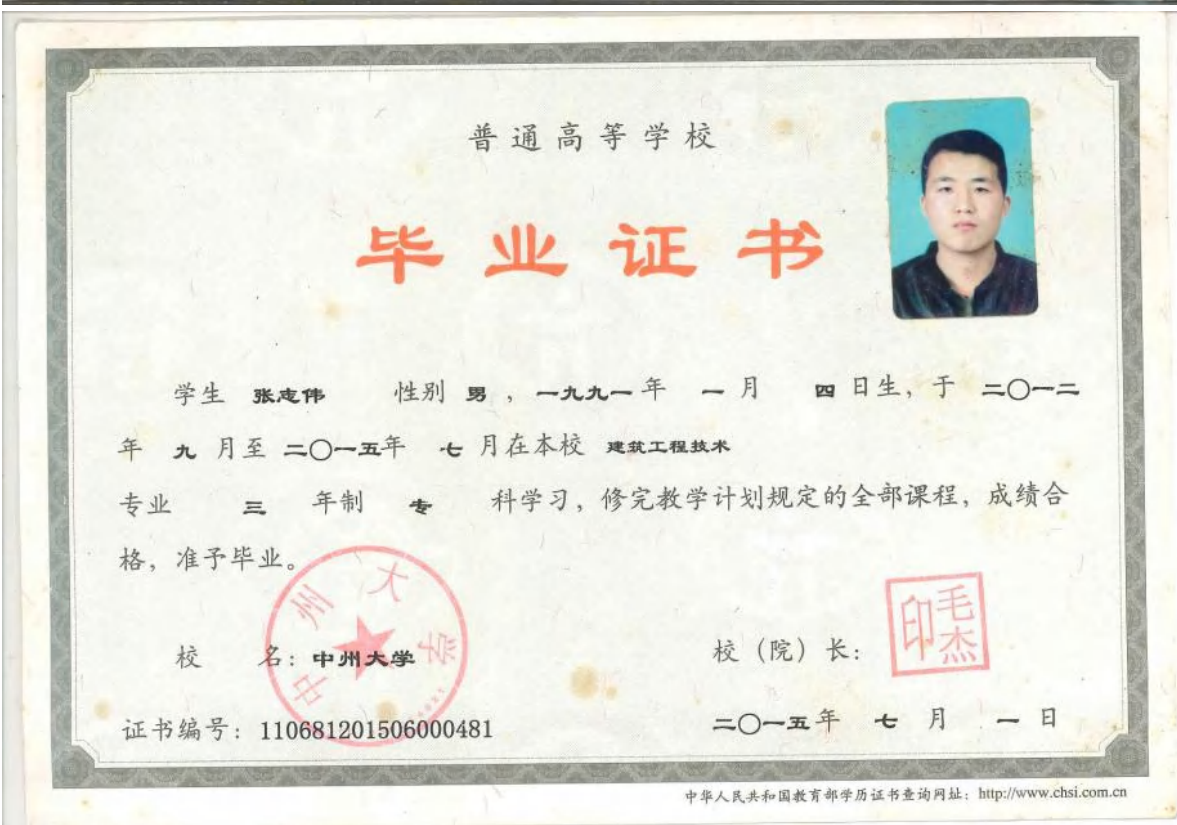 普通高等学校
毕业证书
学生 张志伟 性别 男，一九九一年 一月 四日生，于 二〇一二
年 九月至 二〇一五年 七月在本校 建筑工程技术
专业 三 年制 专 科学习，修完教学计划规定的全部课程，成绩合
格，准予毕业。
中州大学
校 名：中州大学
校（院）长：
毛杰印
证书编号：110681201506000481
二〇一五年 七月 一日
中华人民共和国教育部学历证书查询网址：http://www.chsi.com.cn